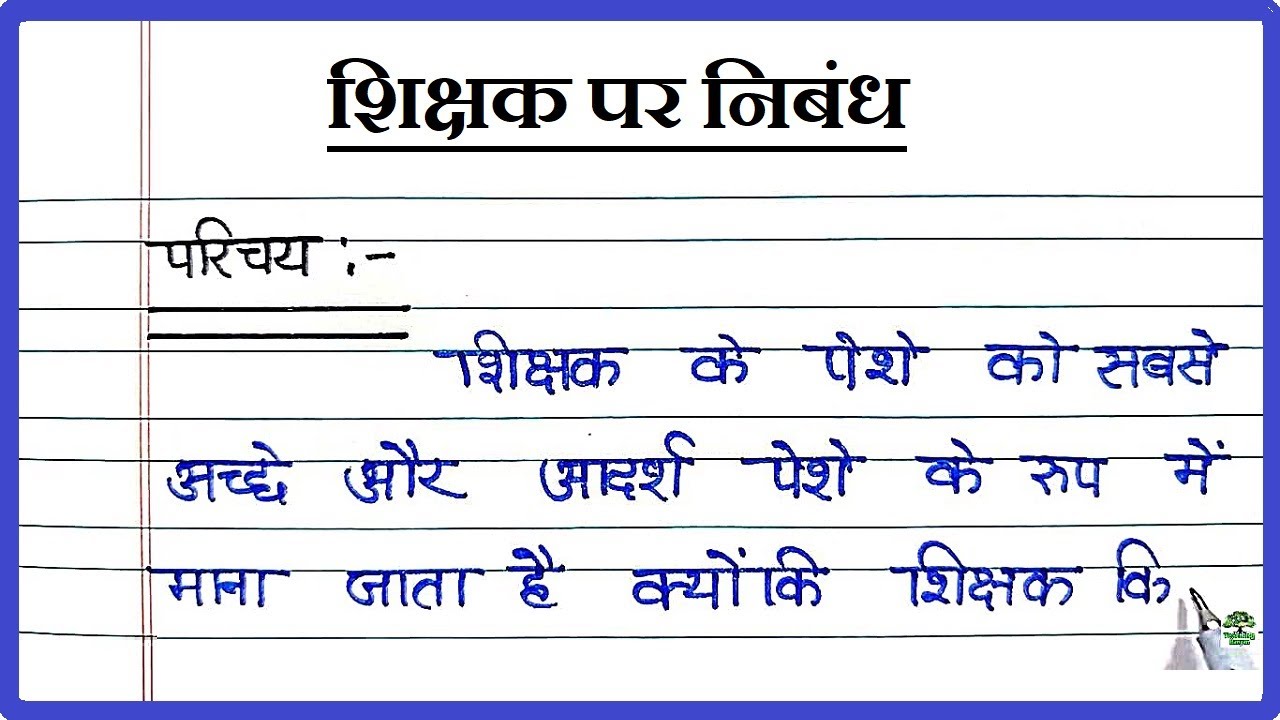 शिक्षक पर निबंध
परिचय :-
शिक्षक के पेशे को सबसे
अच्छे और आदर्श पेशे के रुप में
माना जाता है क्योंकि शिक्षक कि